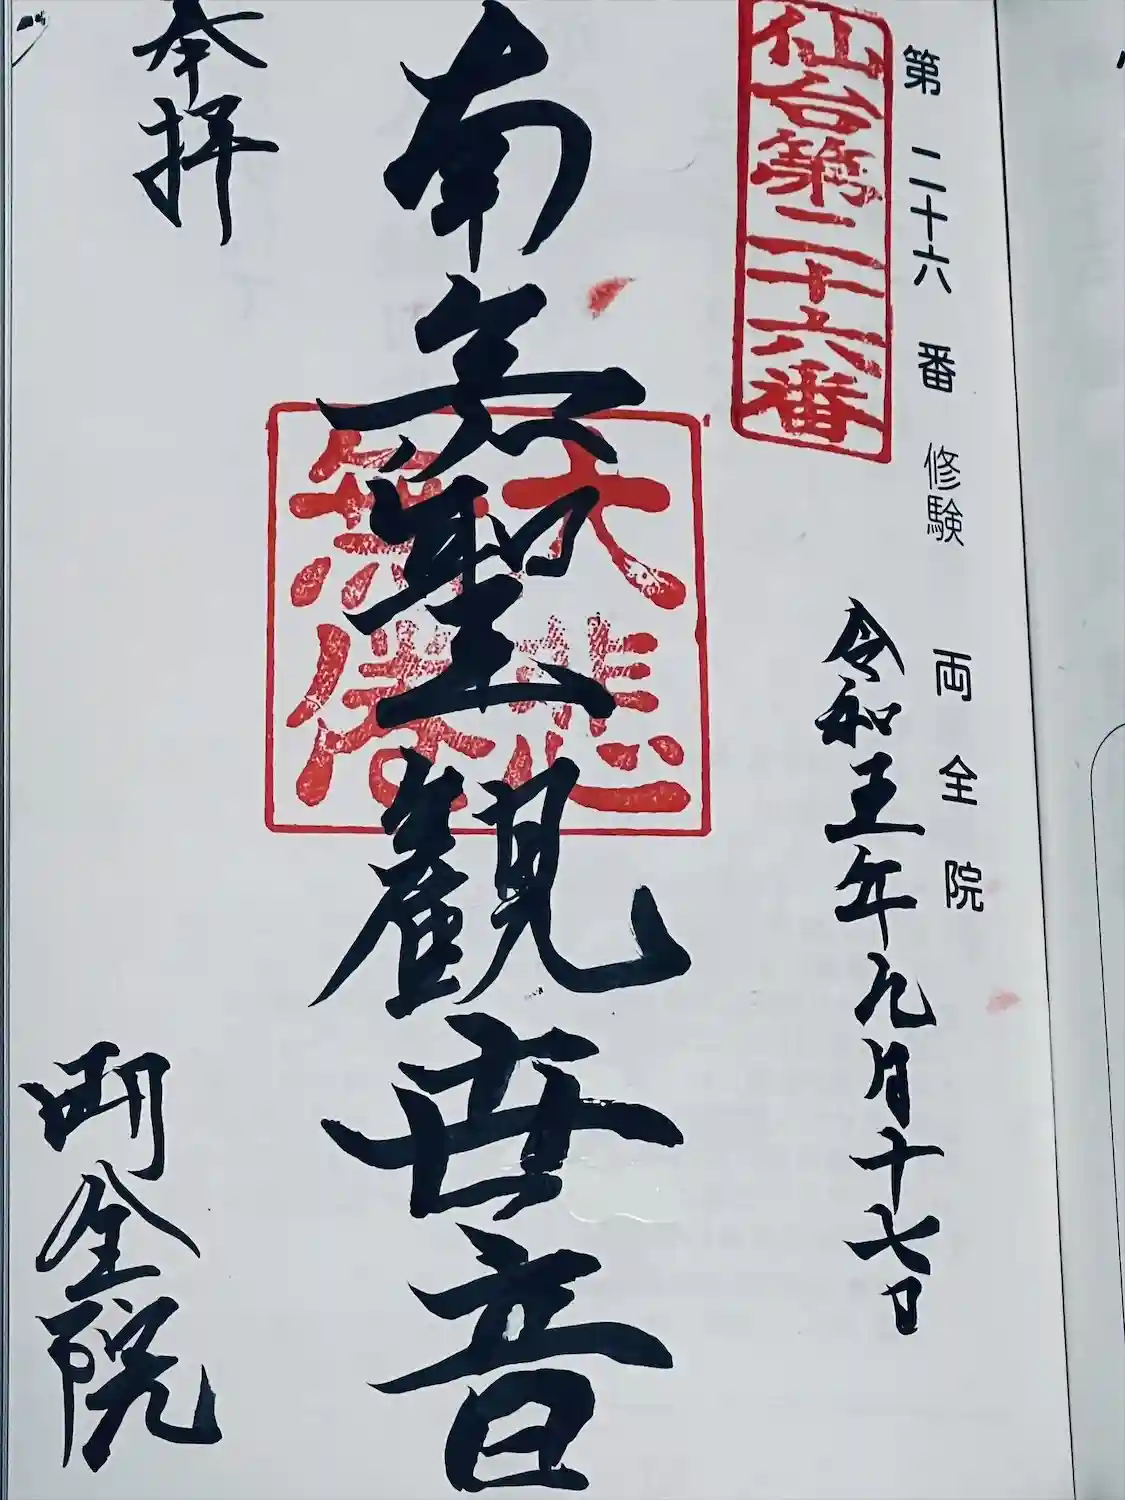 第 二十六 番 修験 両全院
仙台第二十六番
令和五年九月十七日
南無聖觀世音
大悲
無倦
奉拝
両全院